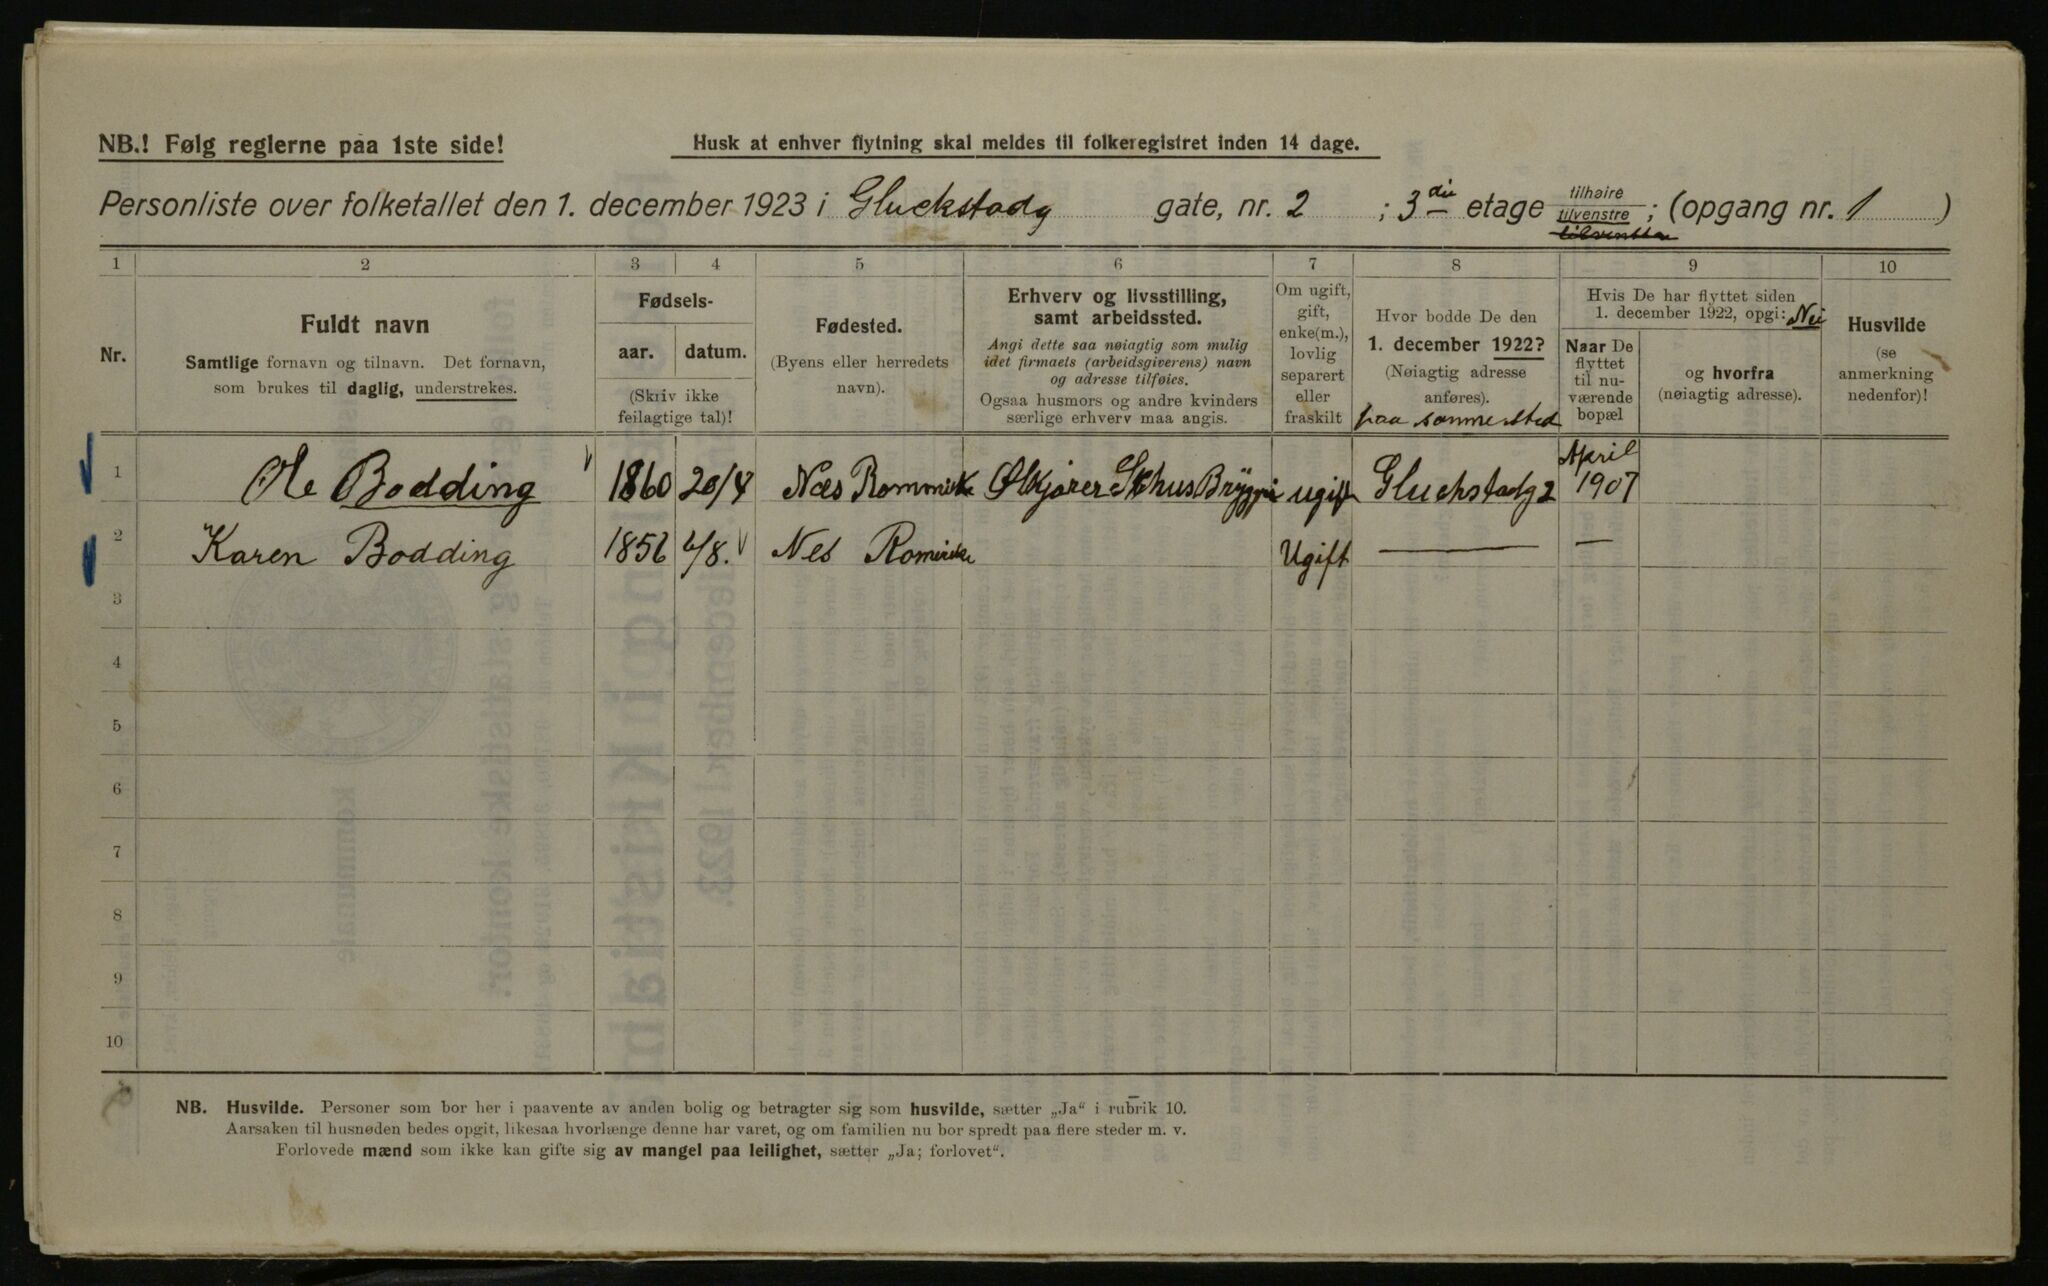 NB.! Følg reglerne paa 1ste side!
Husk at enhver flytning skal meldes til folkeregistret inden 14 dage.
Personliste over folketallet den 1. december 1923 i Gluckstadg gate, nr. 2 ; 3die etage tilhøire tilvenstre ; (opgang nr. 1 )
tilvenstre
1 2 3 4 5 6 7 8 9 10
Nr.
Fuldt navn
Samtlige fornavn og tilnavn. Det fornavn,
som brukes til daglig, understrekes.
Fødsels-
aar. datum.
(Skriv ikke
feilagtige tal)!
Fødested.
(Byens eller herredets
navn).
Erhverv og livsstilling,
samt arbeidssted.
Angi dette saa nøiagtig som mulig
idet firmaets (arbeidsgiverens) navn
og adresse tilføies.
Ogsaa husmors og andre kvinders
særlige erhverv maa angis.
Om ugift,
gift,
enke(m.),
lovlig
separert
eller
fraskilt
Hvor bodde De den
1. december 1922?
(Nøiagtig adresse
anføres).
paa sammested
Hvis De har flyttet siden
1. december 1922, opgi: Nei
Naar De
flyttet
til nu-
værende
bopæl
og hvorfra
(nøiagtig adresse).
Husvilde
(se
anmerkning
nedenfor)!
1 Ole Bodding 1860 20/4 Næs Rommerike Ølkjører Bryggeri ugift Gluckstadg 2 April 1907
2 Karen Bodding 1856 4/8. Nes Romerike Ugift — —
3
4
5
6
7
8
9
10
NB. Husvilde. Personer som bor her i paavente av anden bolig og betragter sig som husvilde, sætter „Ja“ i rubrik 10.
Aarsaken til husnøden bedes opgit, likesaa hvorlænge denne har varet, og om familien nu bor spredt paa flere steder m. v.
Forlovede mænd som ikke kan gifte sig av mangel paa leilighet, sætter „Ja; forlovet“.